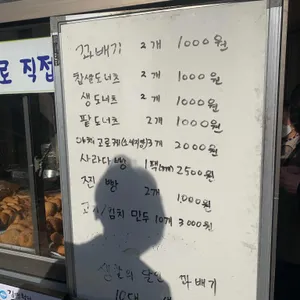 로 직접
꽈배기 2개 1000원
찹쌀도너츠 2개 1000원
생도너츠 2개 1000원
팥도너츠 2개 1000원
야채고로케 3개 2000원
사라다빵 1팩 2500원
찐빵 2개 1,000원
고기/김치 만두 10개 3000원
생활의 달인 꽈배기
10대